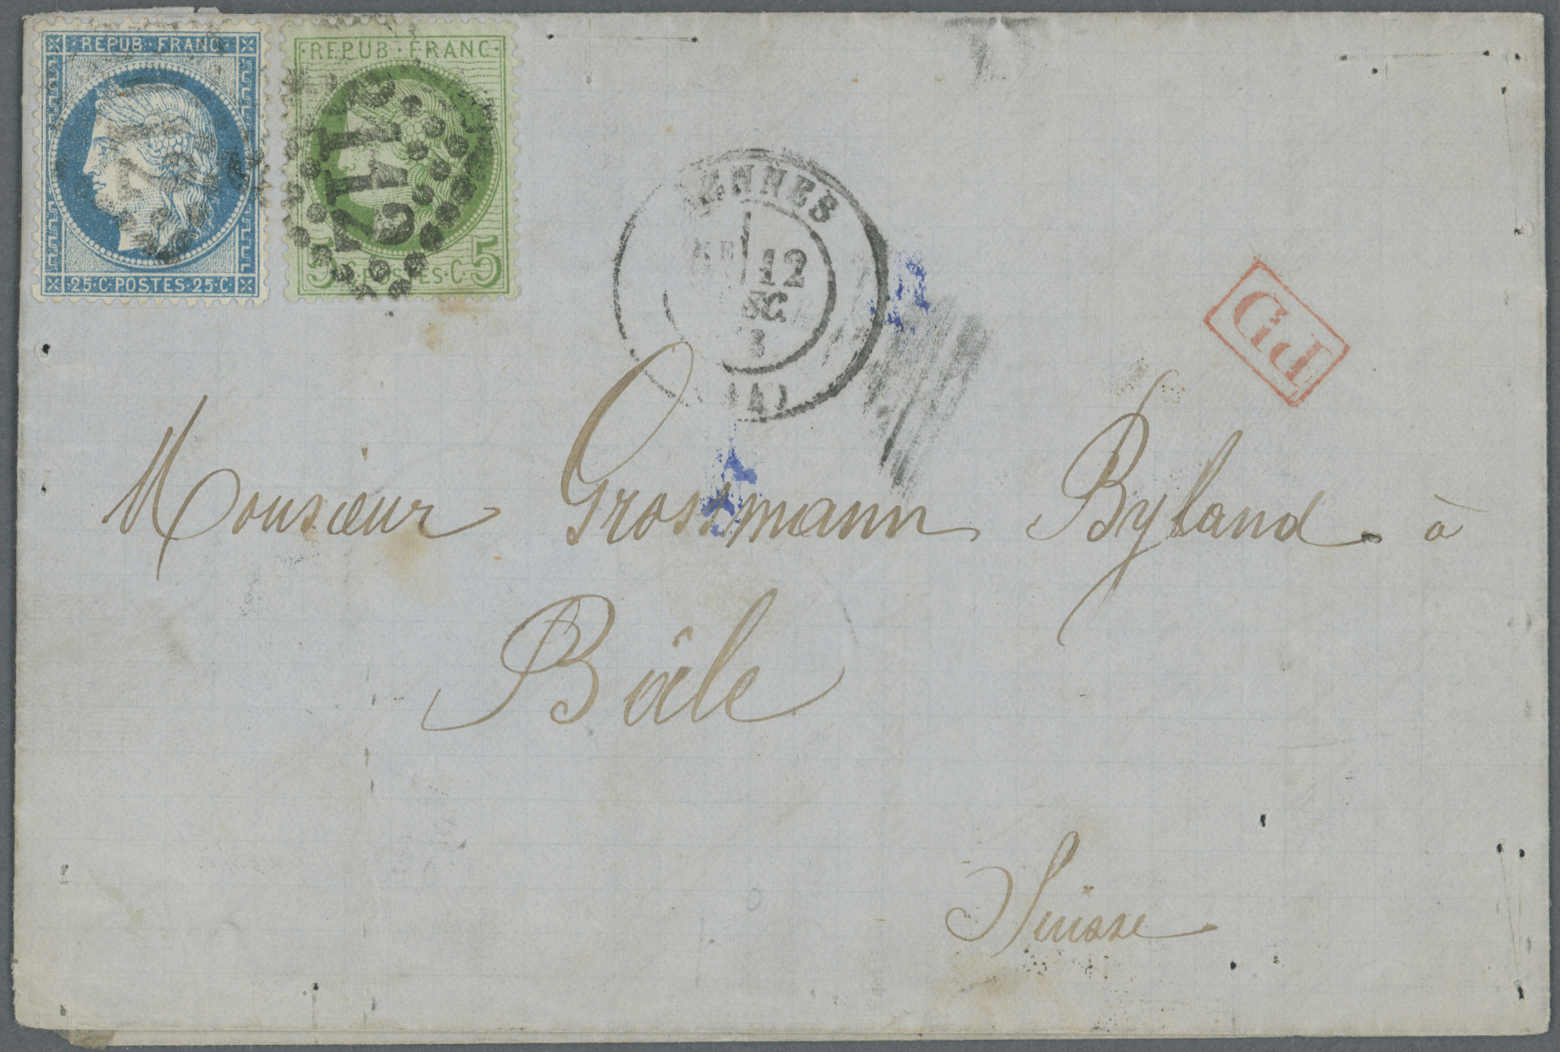 REPUB·FRANC·
25·C·POSTES·25·C
REPUB·FRANC·
5 POSTES·C·5
2112
12
(34)
PD
Monsieur Grossmann Byland. à
Bâle
Suisse